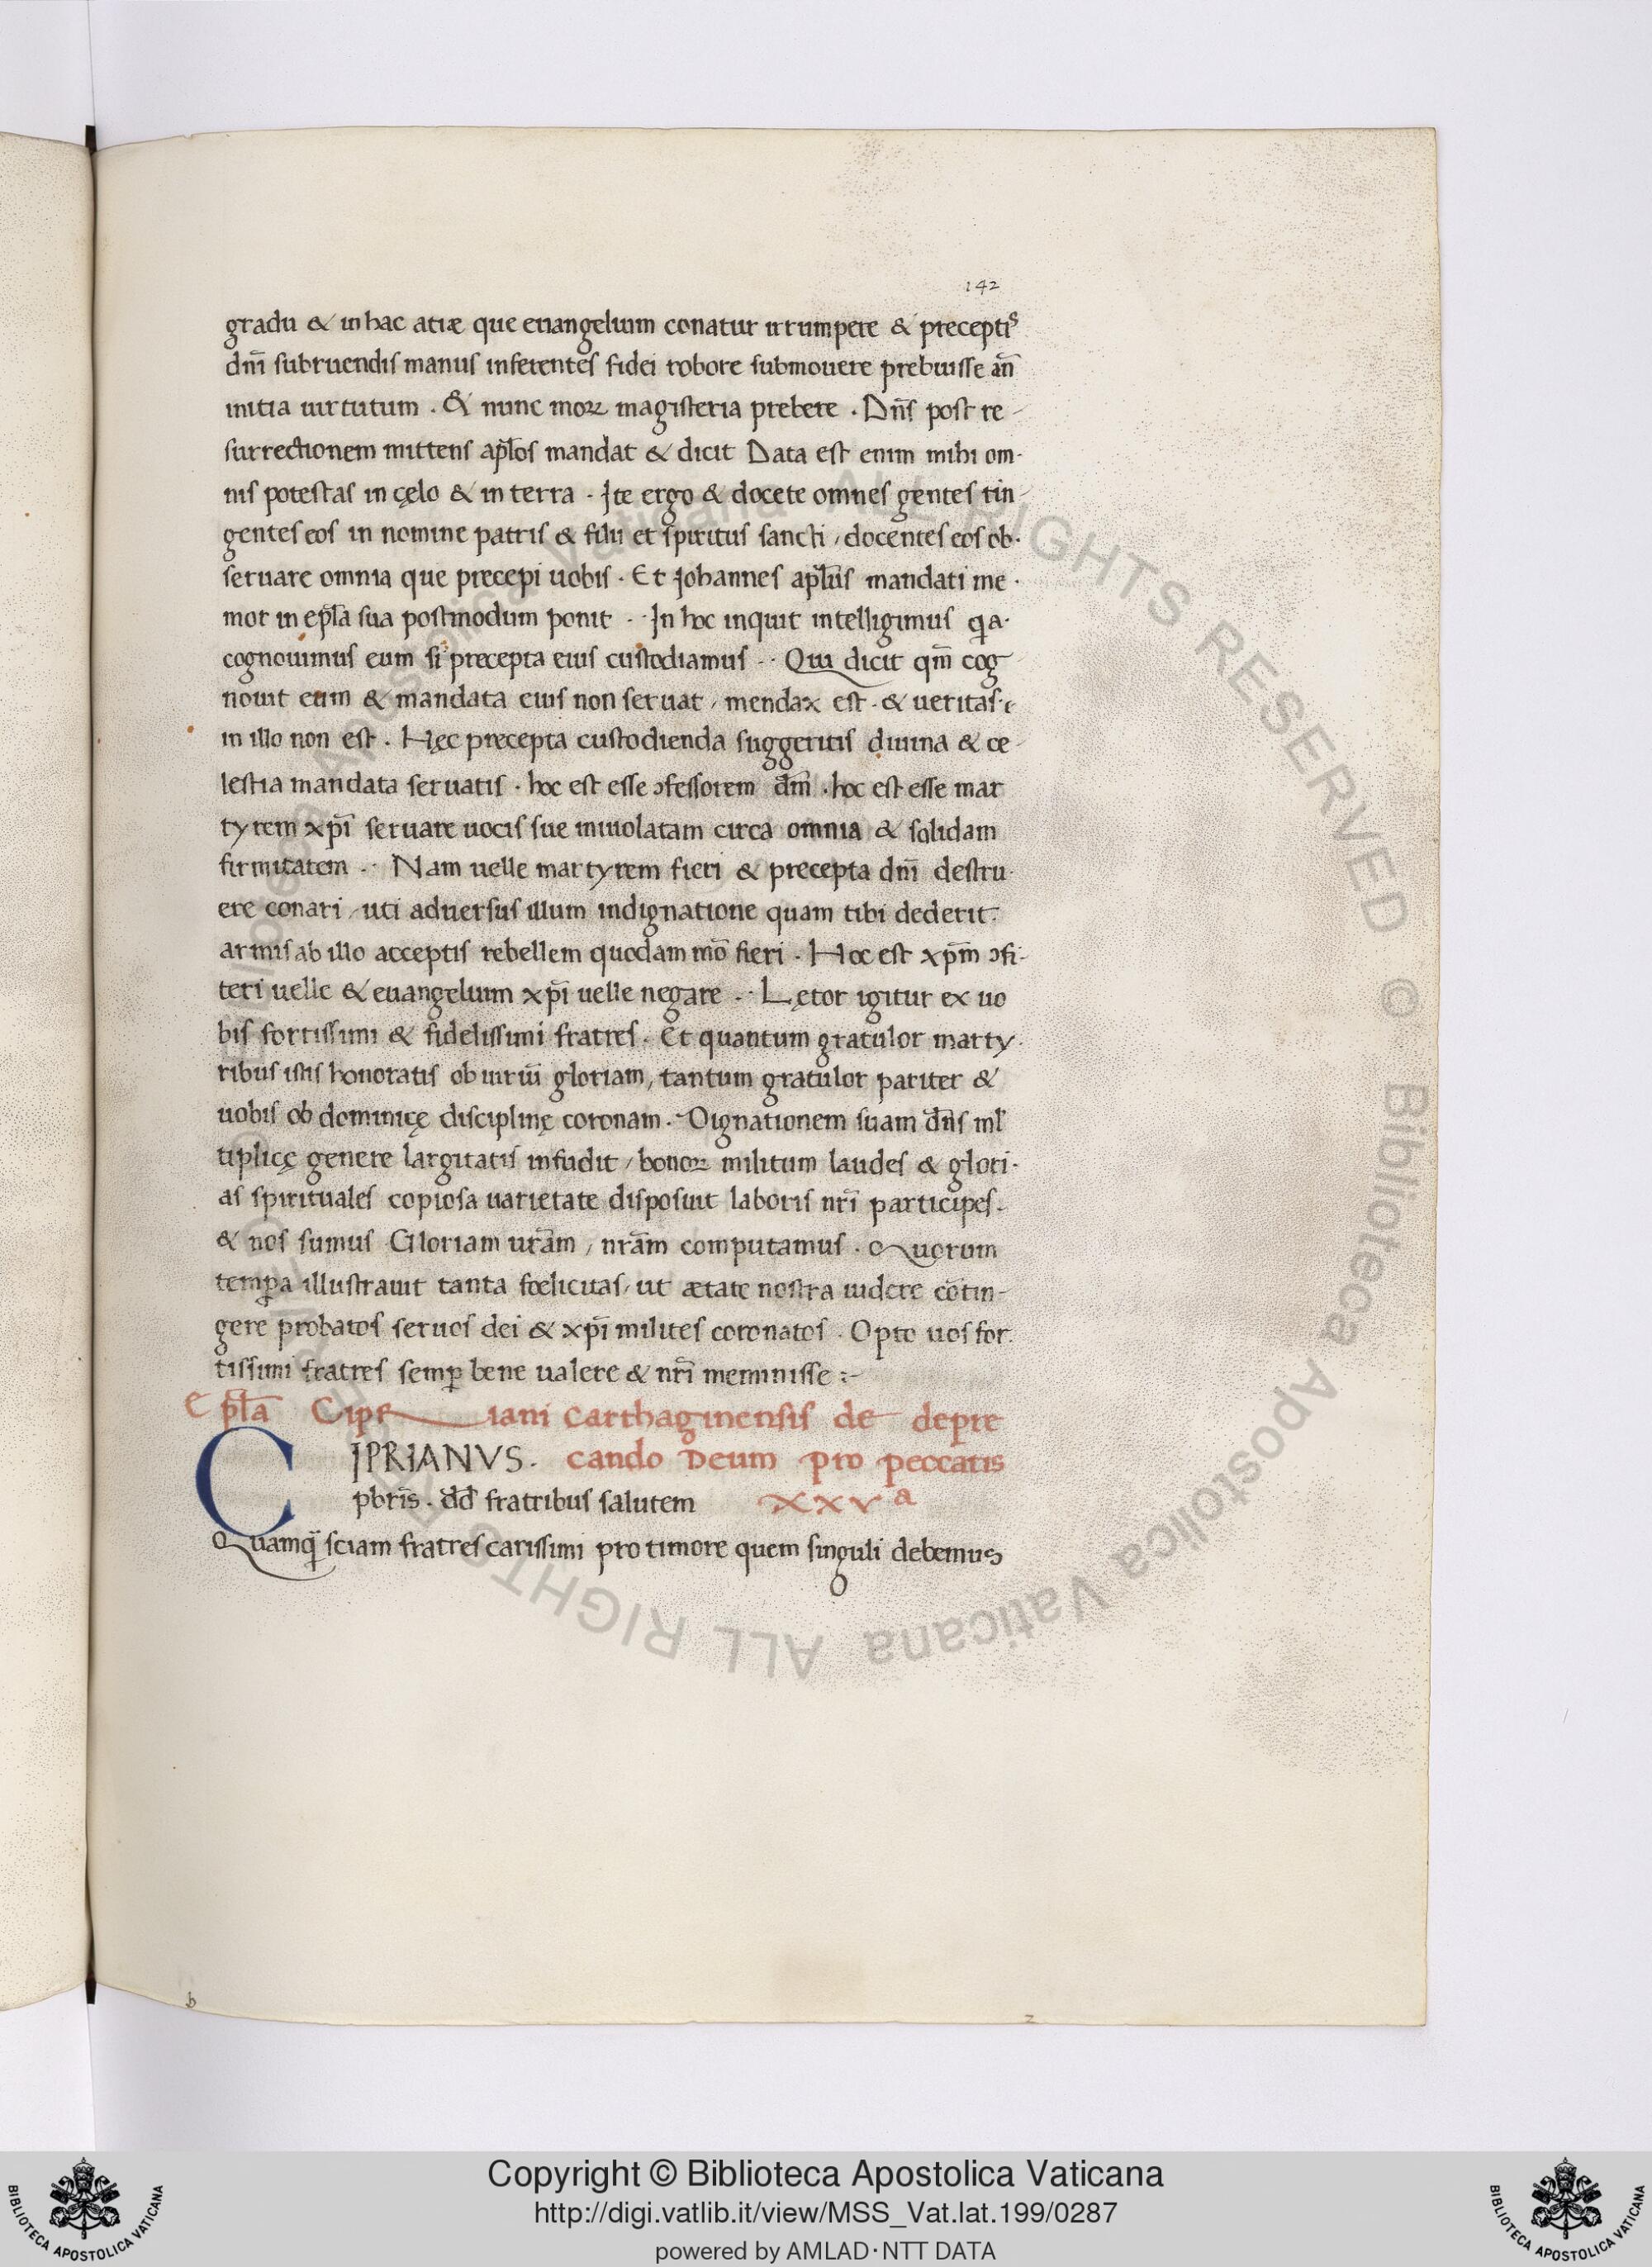 142
gradu & in hac atiæ que euangelium conatur irrumpere & preceptis
dnī subruendis manus inferentes fidei robore submouere prebuisse an̄
initia uirtutum . & nunc moꝝ magisteria prebere . Dn̄s post re-
surrectionem mittens apl̄os mandat & dicit Data est enim mihi om-
nis potestas in cęlo & in terra . Ite ergo & docete omnes gentes tin-
gentes eos in nomine patris & filii et spiritus sancti , docentes eos ob-
seruare omnia que precepi uobis . Et Johannes apl̄us mandati me-
mor in epl̄a sua postmodum ponit . In hoc inquit intelligimus qa
cognouimus eum si precepta eius custodiamus . Qui dicit qm̄ cog
nouit eum & mandata eius non seruat , mendax est . & ueritas
in illo non est . Hęc precepta custodienda suggeritis diuina & ce-
lestia mandata seruatis . hoc est esse ɔfessorem dn̄i . hoc est esse mar
tyrem xpī seruare uocis sue inuiolatam circa omnia & solidam
firmitatem . Nam uelle martyrem fieri & precepta dnī destru-
ere conari , uti aduersus illum indignatione quam tibi dederit .
armis ab illo acceptis rebellem quodam mō fieri . Hoc est xpm̄ ɔfi-
teri uelle & euangelium xpī uelle negare . Lętor igitur ex uo
bis fortissimi & fidelissimi fratres . Et quantum gratulor marty-
ribus istis honoratis ob uiriū gloriam , tantum gratulor pariter &
uobis ob dominicę disciplinę coronam . Dignationem suam dn̄s ml̄
tiplicę genere largitatis infudit , bonoꝝ militum laudes & glori-
as spirituales copiosa uarietate disposuit laboris nrī participes .
& nos sumus Gloriam urām , nrām computamus . Quorum
temꝑa illustrauit tanta foelicitas , ut ætate nostra uidere cōtin-
gere probatos seruos dei & xpī milites coronatos . Opto uos for-
tissimi fratres semꝑ bene ualere & nrī meminisse :-
Epl̄a Cipriani Carthaginensis de depre
CIPRIANVS . cando Deum pro peccatis
pbrīs . dd̄ fratribus salutem XXVª
Quamq̄ sciam fratres carissimi pro timore quem singuli debemus
b
2
Copyright © Biblioteca Apostolica Vaticana
http://digi.vatlib.it/view/MSS_Vat.lat.199/0287
powered by AMLAD·NTT DATA
BIBLIOTECA APOSTOLICA VATICANA
BIBLIOTECA APOSTOLICA VATICANA
© Biblioteca Apostolica Vaticana ALL RIGHTS RESERVED © Biblioteca Apostolica Vaticana ALL RIGHTS RESERVED